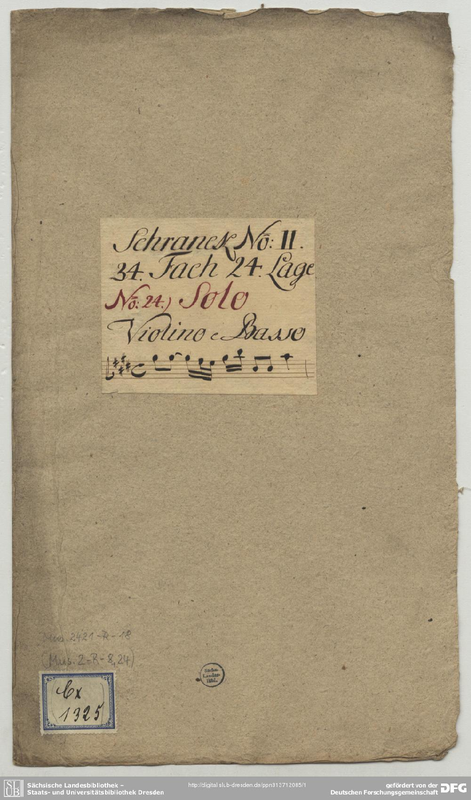 Schranck No: II.
34. Fach 24. Lage
No: 24.) Solo
Violino e Basso
Mus. 2421-R-18
(Mus. 2-R-8,24)
Cx
1325
Sächsische Landesbibliothek –
Staats- und Universitätsbibliothek Dresden
gefördert von der DFG
Deutschen Forschungsgemeinschaft